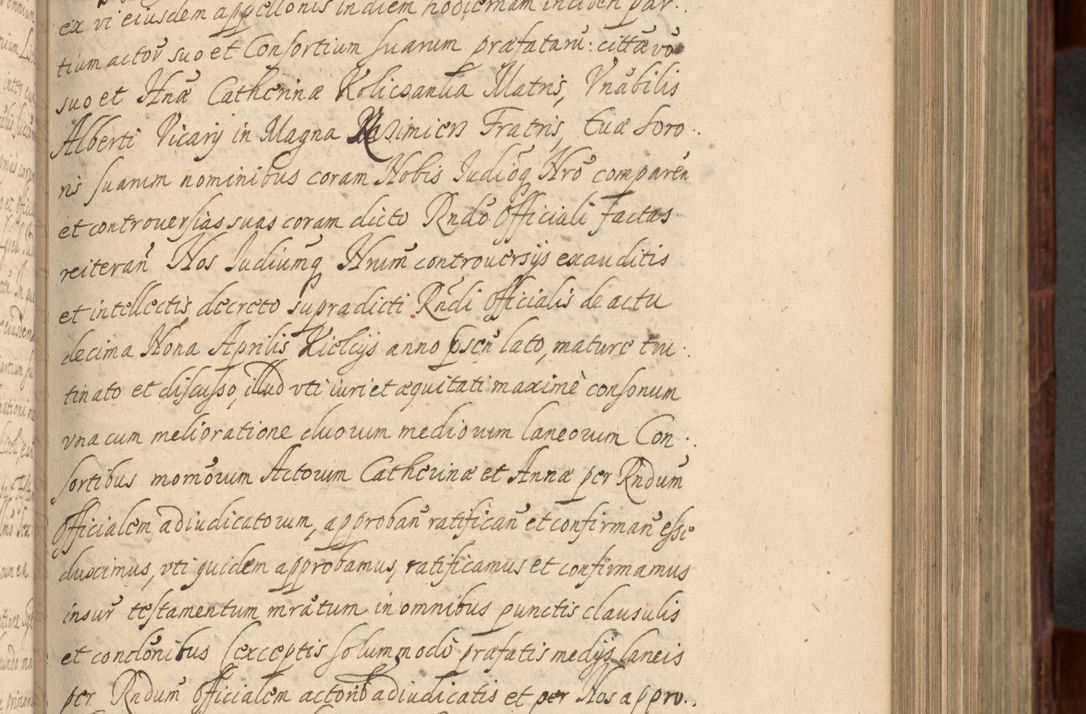 ex vi eiusdem appellonis in diem hodiernam inciden par:
tium actor̃ suo et Consortium suarum præfatarũ: cittæ võ
suo et Annæ Catherinæ Koliczanka Matris, Vnãbilis
Alberti Vicarij in Magna Kazimiers Fratris, tuæ Soro:
ris suarum nominibus coram Nobis Iudiõq Nrõ comparẽn
et controversias suas coram dicto Rndõ Officiali factas
reiterañ Nos Iudiumq Nrum controuersijs exauditis
et intellectis decreto supradicti Rñdi Officialis de actu
decima Nona Aprilis Kielcijs anno pseñ lato, mature tru:
tinato et discusso, illud vti iuri et æquitati maximè consonum
vna cum melioratione duorum mediorum laneorum Con:
sortibus momõrum Actorum Catherinæ et Annæ per Rndum̃
Officialem adiudicatorum, approbañ ratificañ et confirmañ esse
duximus, vti quidem approbamus, ratificamus et confirmamus
insuꝛ̃ testamentum mrãtum in omnibus punctis clausulis
et conclõnibus (exceptis solummodò præfatis medijs laneis
per Rndum̃ Officialem actorib adiudicatis et per Nos appro: